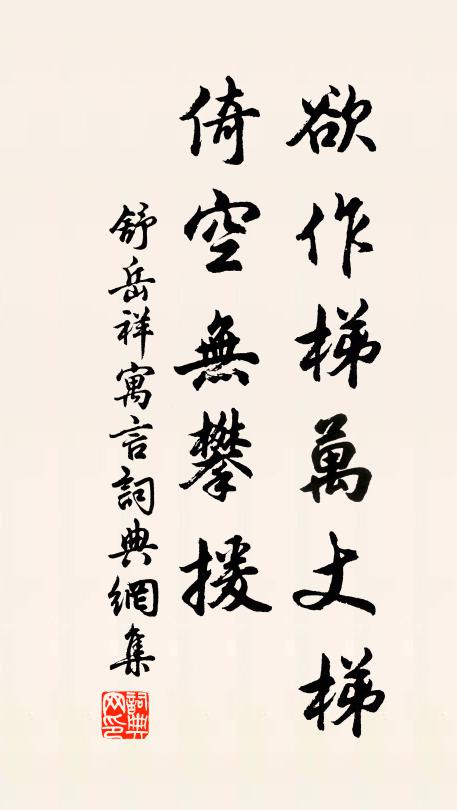 欲作梯萬丈梯
倚空無攀援
舒岳祥寓言詞典網集
詞典网印